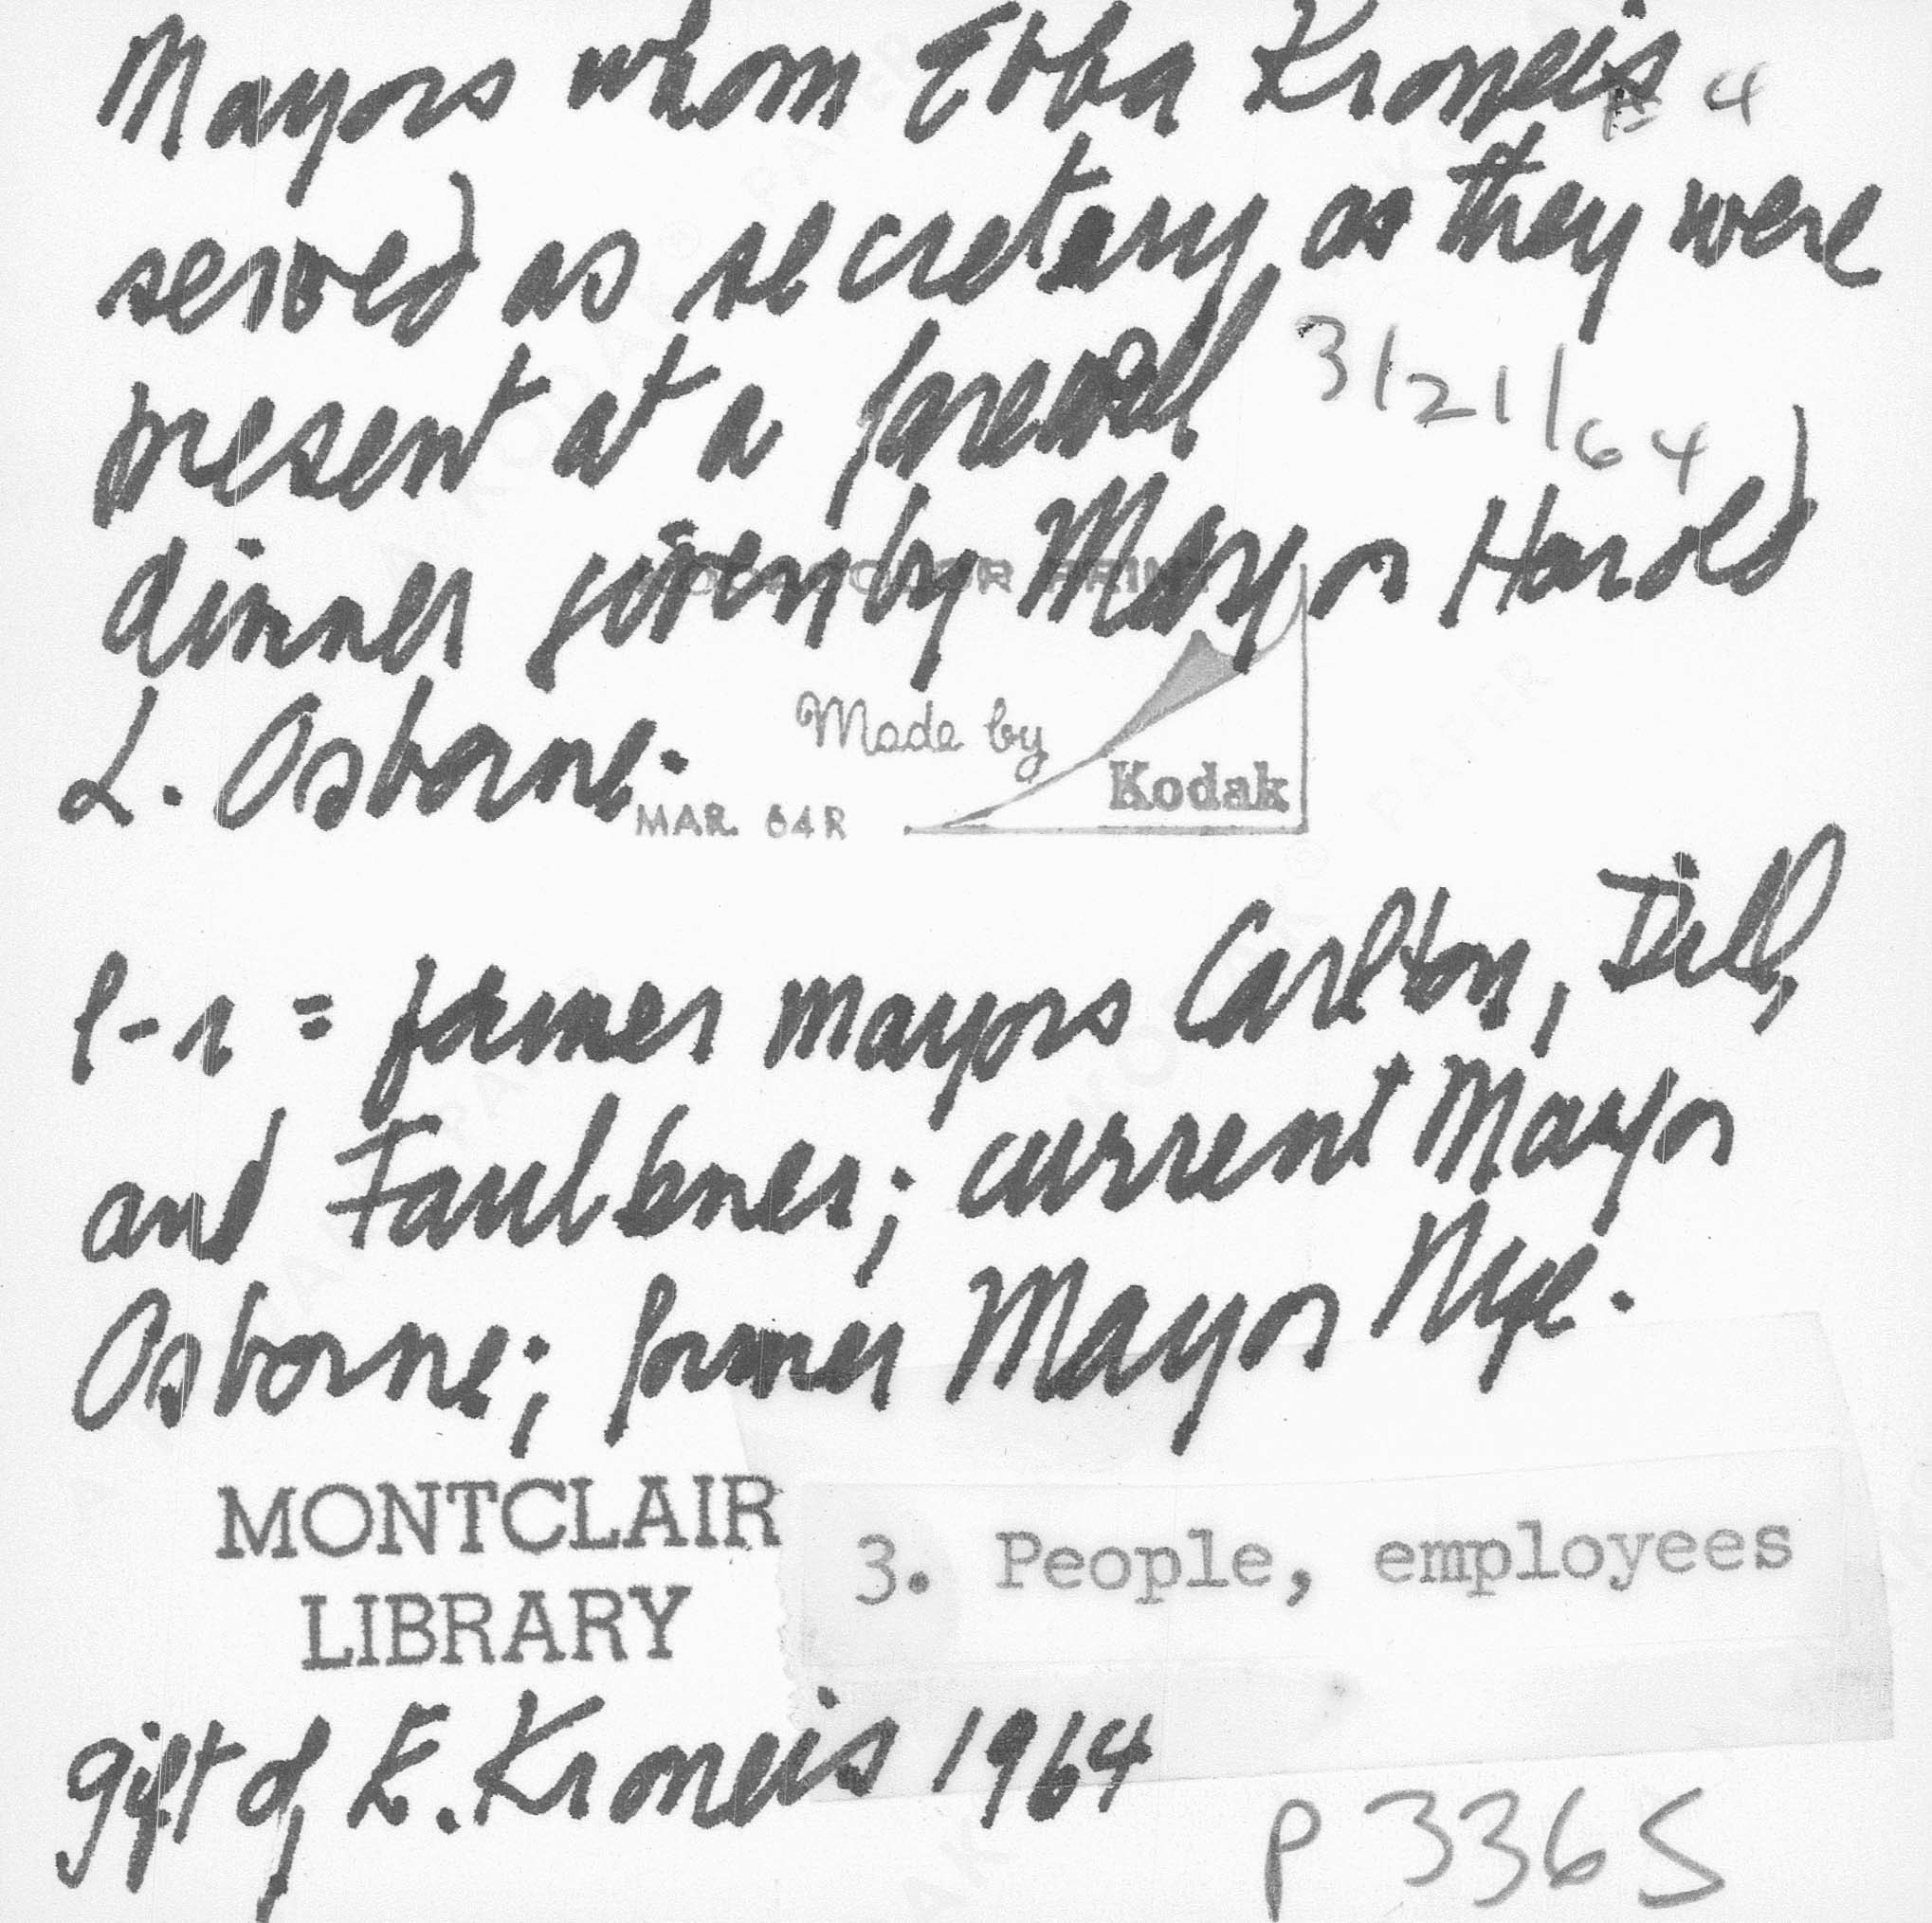 Mayors whom Ebba Kroneis
4
served as secretary, as they were
present at a farewell 3/21/64
dinner given by Mayor Harold
L. Osborne.
Made by
Kodak
MAR. 64R
l-r = former mayors Carlton, Dill,
and Faulkner; current Mayor
Osborne; former Mayor Nye.
MONTCLAIR
LIBRARY
3. People, employees
gift of E. Kroneis 1964
P 3365